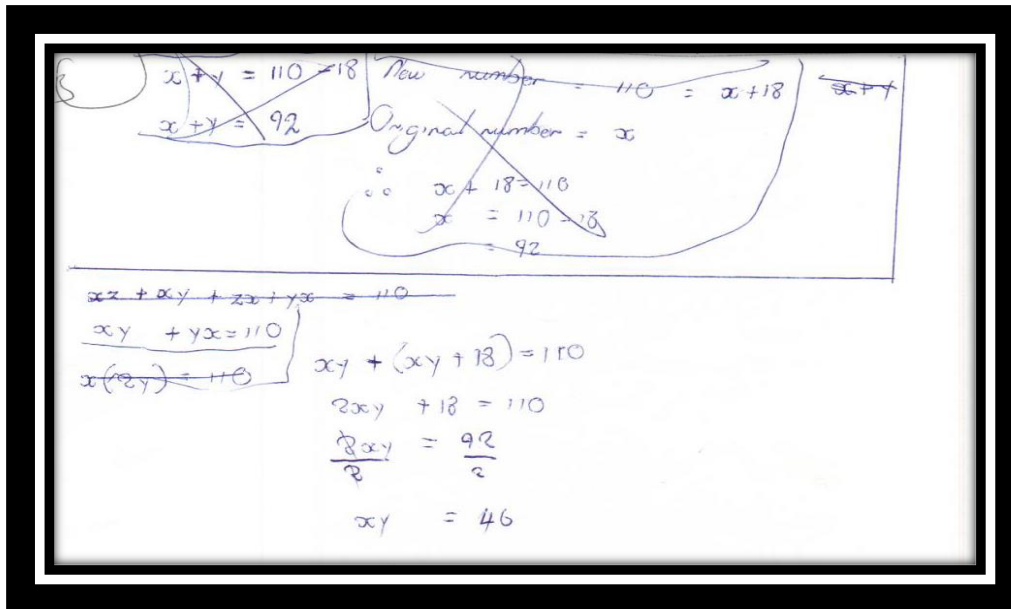 x + y = 110 - 18
x + y = 92
New number = 110 = x + 18
x + y
Original number = x
∴ x + 18 = 110
x = 110 - 18
= 92
xz + xy + zx + yx = 110
xy + yx = 110
x(2y) = 110
xy + (xy + 18) = 110
2xy + 18 = 110
2xy/2 = 92/2
xy = 46